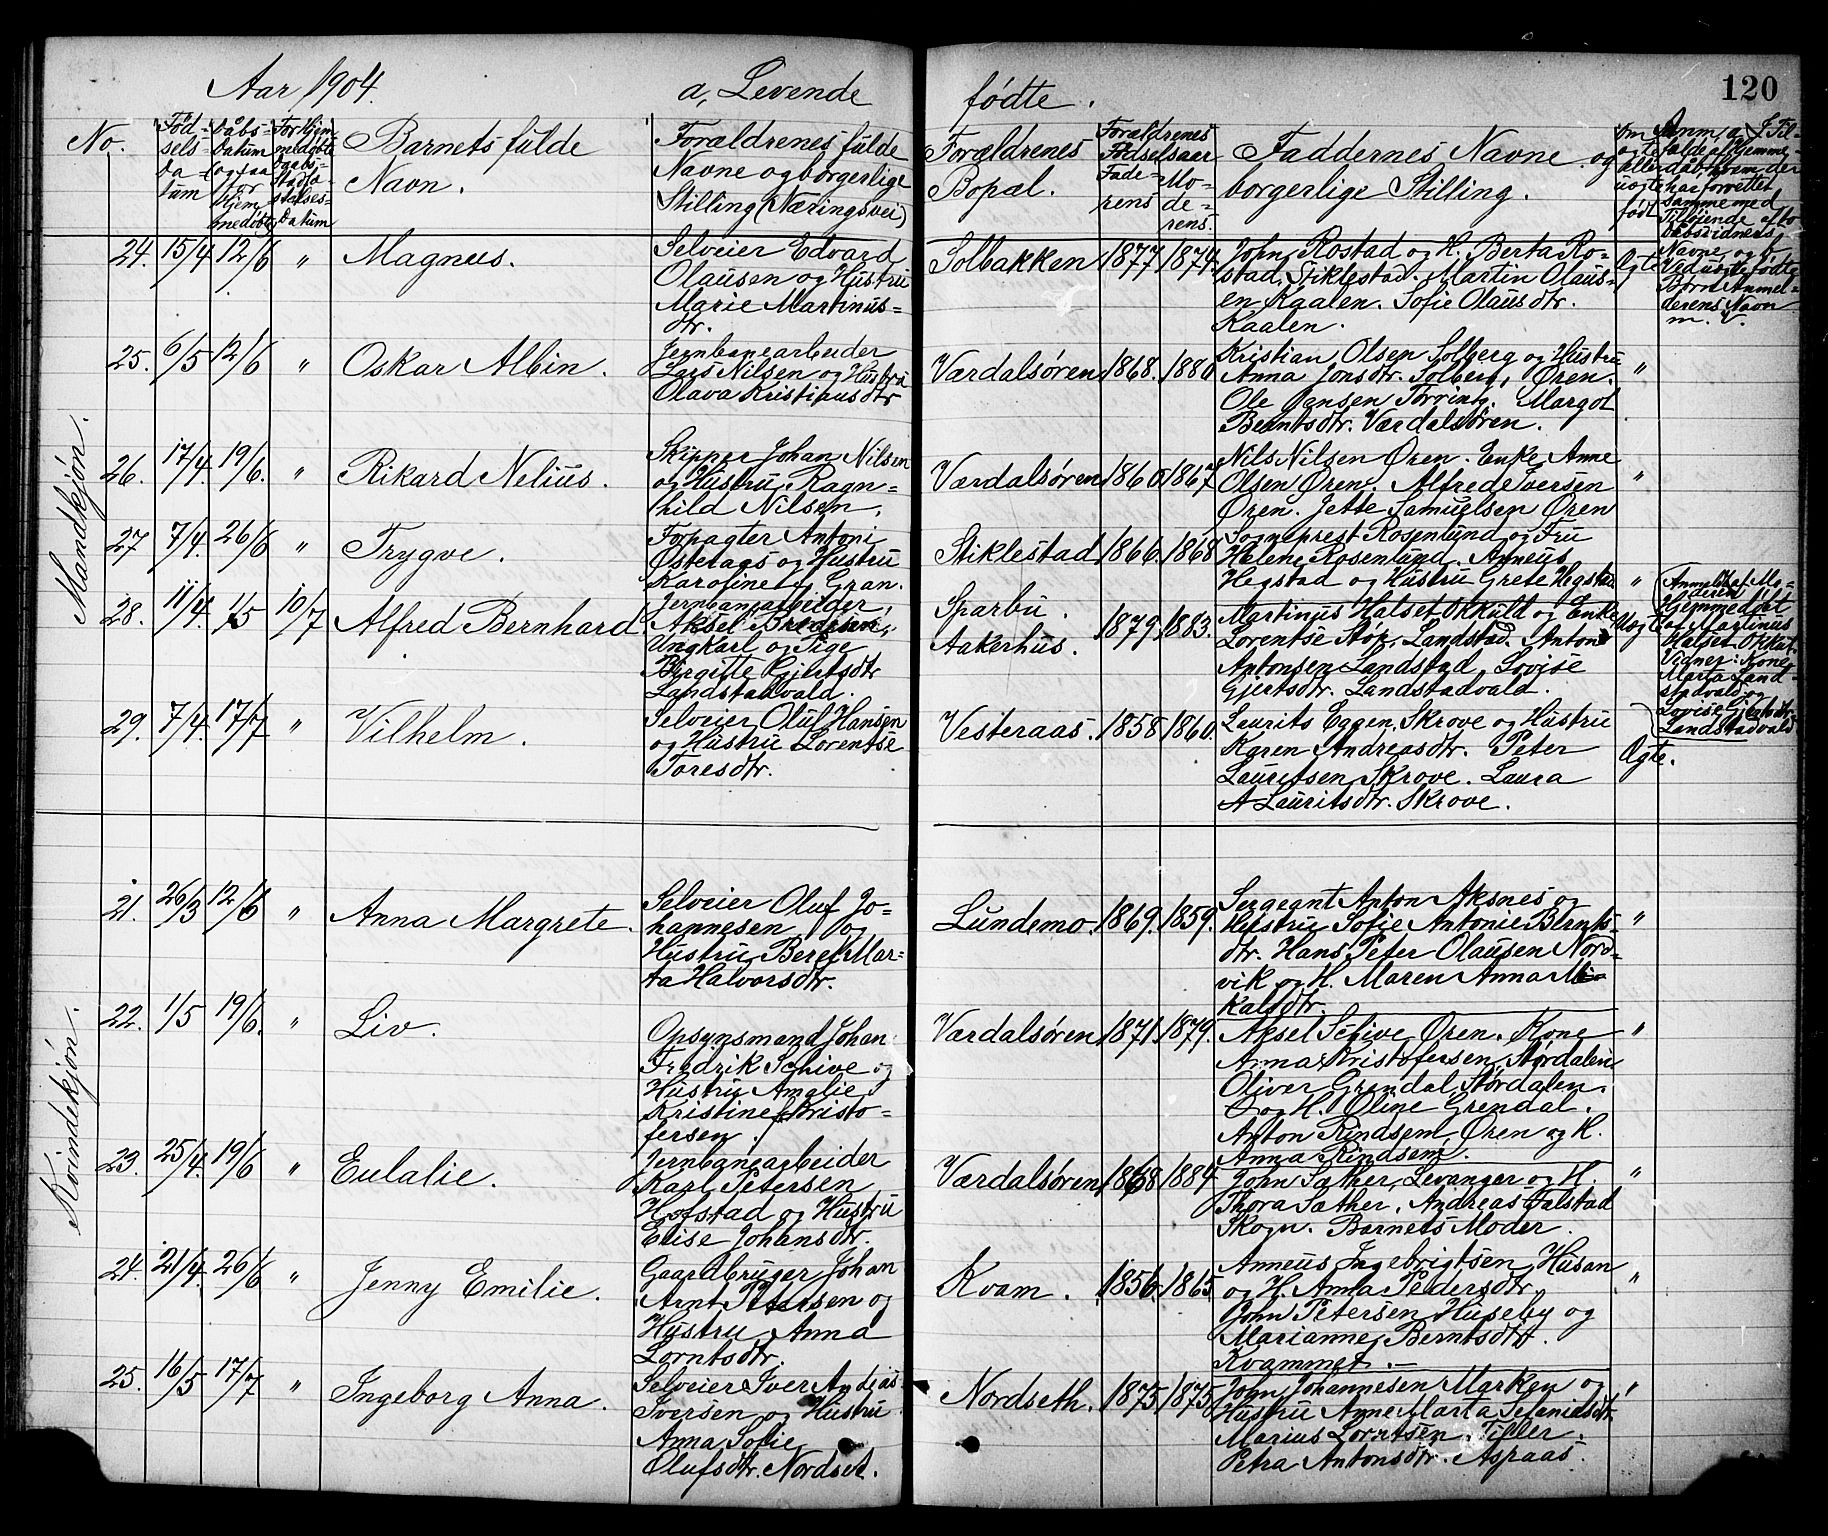 120
Aar 1904. a, Levende fødte.
No.
Fød-
sels-
Da-
tum
Dåbs-
Datum
(ogsaa
for
hjem
medøbte
For hjem
medøbte
Daabs-
Stadfæ-
stelses-
Datum
Barnets fulde
Navn.
Forældrenes fulde
Navne og borgerlige
Stilling (Næringsvei)
Forældrenes
Bopæl.
Forældrenes
Fødselsaar
Fade-
rens
Mo-
de-
rens.
Faddernes Navne og
borgerlige Stilling.
Om
ægte
eller
uægte
født
hjemme-
dåb, hvem der
har forrettet
samme med
Tilføiende af to
Dåbsvidners
Navne, og b,
Ved uægte fødte
Børn Anmel-
derens Navn
m. V.
Mandkjøn.
24. 15/4 12/6 " Magnus.
Selveier Edvard
Olausen og Hustru
Marie Martinus-
dtr.
Solbakken 1877 1874.
John Rostad og H. Berta Ro-
stad, Stiklestad. Martin Olaus-
en Kaalen. Sofie Olausdtr.
Kaalen.
Ægte
25. 6/5 12/6 " Oskar Albin.
Jernbanearbeider
Lars Nilsen og Hustru
Olava Kristiansdtr
Værdalsøren 1868. 1880
Kristian Olsen Solberg og Hustru
Anna Jonsdtr. Solberg, Øren.
Ole Jensen Tørring. Margot
Berntsdtr. Værdalsøren.
"
26. 17/4. 19/6. " Rikard Nelius.
Skipper Johan Nilsen
og Hustru Ragn-
hild Nilsen.
Værdalsøren 1860 1867
Nils Nilsen Øren. Enke Anne
Olsen Øren. Alfred Iversen
Øren. Jette Samuelsen Øren
"
27 7/4. 26/6 " Trygve.
Forpagter Antoni
Østeraas og Hustru
Karoline f. Gran.
Stiklestad 1866. 1868
Sogneprest Rosenlund og Fru
Helene Rosenlund. Anneus
Hegstad og Hustru Grete Hegstad
"
28. 11/4. 1/5 10/7 Alfred Bernhard
Jernbanearbeider,
Aksel Bredesen,
Ungkarl og Pige
Birgitte Gjertsdtr
Landstadvald.
Sparbu.
Aakerhus.
1879. 1883.
Martinus Halset Okkuld og Enke
Lorentse Støp, Landstad. Anton
Antonsen Landstad, Lovise
Gjertsdtr. Landstadvald.
Uægte
Anmeldt af Mo-
deren
Hjemmedøbt
af Martinus
Halset Okkul.
Vidner: Kone
Marta Land-
stadvald og
Lovise Gjertsdtr.
Landstadvald
29. 7/4. 17/7 " Vilhelm.
Selveier Oluf Hansen
og Hustru Lorentse
Toresdtr.
Vesteraas. 1858 1860.
Laurits Eggen, Skrove og Hustru
Karen Andreasdtr. Peter
Lauritsen Skrove. Laura
A Lauritsdtr. Skrove.
Ægte.
Kvindekjøn.
21. 26/3 12/6 " Anna Margrete.
Selveier Oluf Jo-
hannesen og
Hustru Beret Mar-
ta Halvorsdtr.
Lundemo. 1869. 1859.
Sergeant Anton Aksnes og
Hustru Sofie Antonie Bernts-
dtr. Hans Peter Olausen Nord-
vik og H. Maren Anna Mi-
kalsdtr.
"
22. 1/5 19/6. " Liv.
Opsynsmand Johan
Fredrik Schive og
Hustru Amalie
Kristine f. Kristo-
fersen.
Værdalsøren 1871. 1879.
Aksel Schive, Øren. Kone
Anna Kristofersen, Størdalen
Oliver Grendal, Størdalen.
og H. Oline Grendal.
Anton Rindsem, Øren og H.
Anna Rindsem.
"
23. 25/4. 19/6 " Eulalie.
Jernbanearbeider
Karl Petersen
Hofstad og Hustru
Elise Johansdtr.
Værdalsøren 1868 1884
John Sæther, Levanger og H.
Thora Sæther. Andreas Falstad
Skogn. Barnets Moder.
"
24. 21/4. 26/6 " Jenny Emilie.
Gaardbruger Johan
Arnt Petersen og
Hustru Anna
Lorntsdtr.
Kvam. 1856. 1865
Anneus Ingebrigtsen, Husan
og H. Anna Pedersdtr.
John Petersen Huseby og
Marianne Berntsdtr.
Kvammet.-
"
25. 16/5 17/7 " Ingeborg Anna.
Selveier Iver Andias
Iversen og Hustru
Anna Sofie
Olufsdtr. Nordset.
Nordseth. 1875 1875
John Johannesen Marken og
Hustru Anne Marta
Marius Lorntsen Tiller.
Petra Antonsdtr. Aspaas.
"